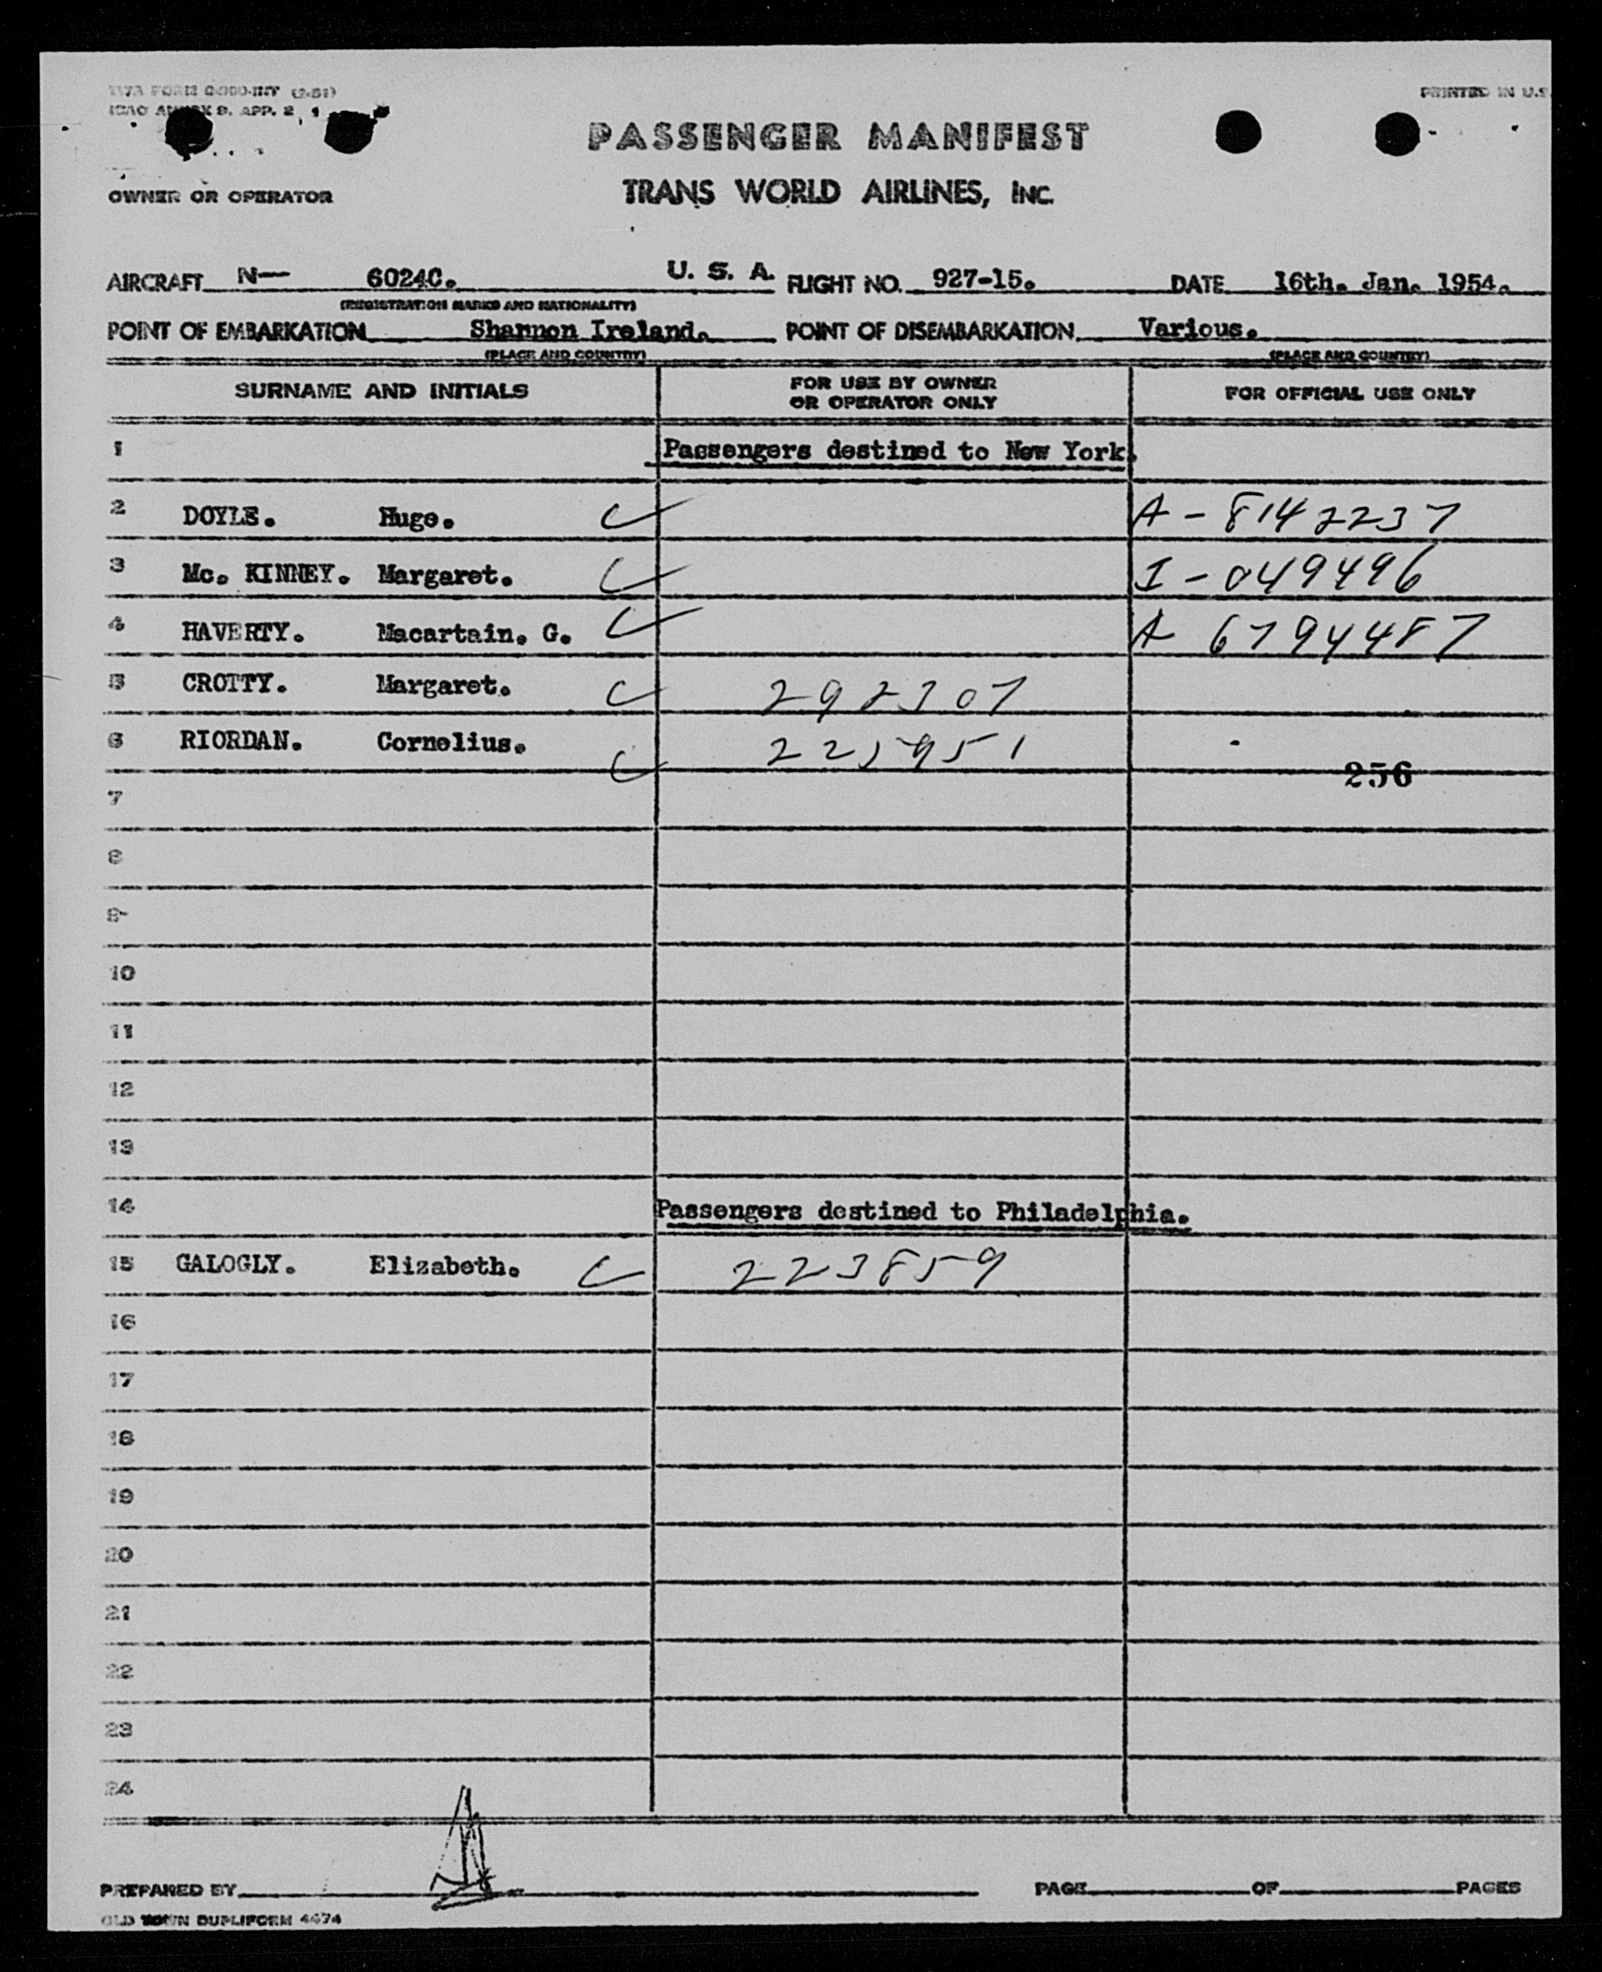 TWA FORM (2-51)
ICAO ANNEX 9, APP. 2
PRINTED IN U.S.
PASSENGER MANIFEST
OWNER OR OPERATOR
TRANS WORLD AIRLINES, INC.
AIRCRAFT N— 6024C. U. S. A. FLIGHT NO. 927-15. DATE 16th. Jan. 1954.
(REGISTRATION MARKS AND NATIONALITY)
POINT OF EMBARKATION Shannon Ireland. POINT OF DISEMBARKATION Various.
(PLACE AND COUNTRY) (PLACE AND COUNTRY)
SURNAME AND INITIALS FOR USE BY OWNER OR OPERATOR ONLY FOR OFFICIAL USE ONLY
1 Passengers destined to New York.
2 DOYLE. Hugo. A - 8142237
3 Mc. KINNEY. Margaret. I - 049496
4 HAVERTY. Macartain. G. A 6794487
5 CROTTY. Margaret. 292307
6 RIORDAN. Cornelius. 225951
256
7
8
9
10
11
12
13
14 Passengers destined to Philadelphia.
15 GALOGLY. Elizabeth. 223859
16
17
18
19
20
21
22
23
24
PREPARED BY PAGE OF PAGES
OLD TOWN DUPLIFORM 4474